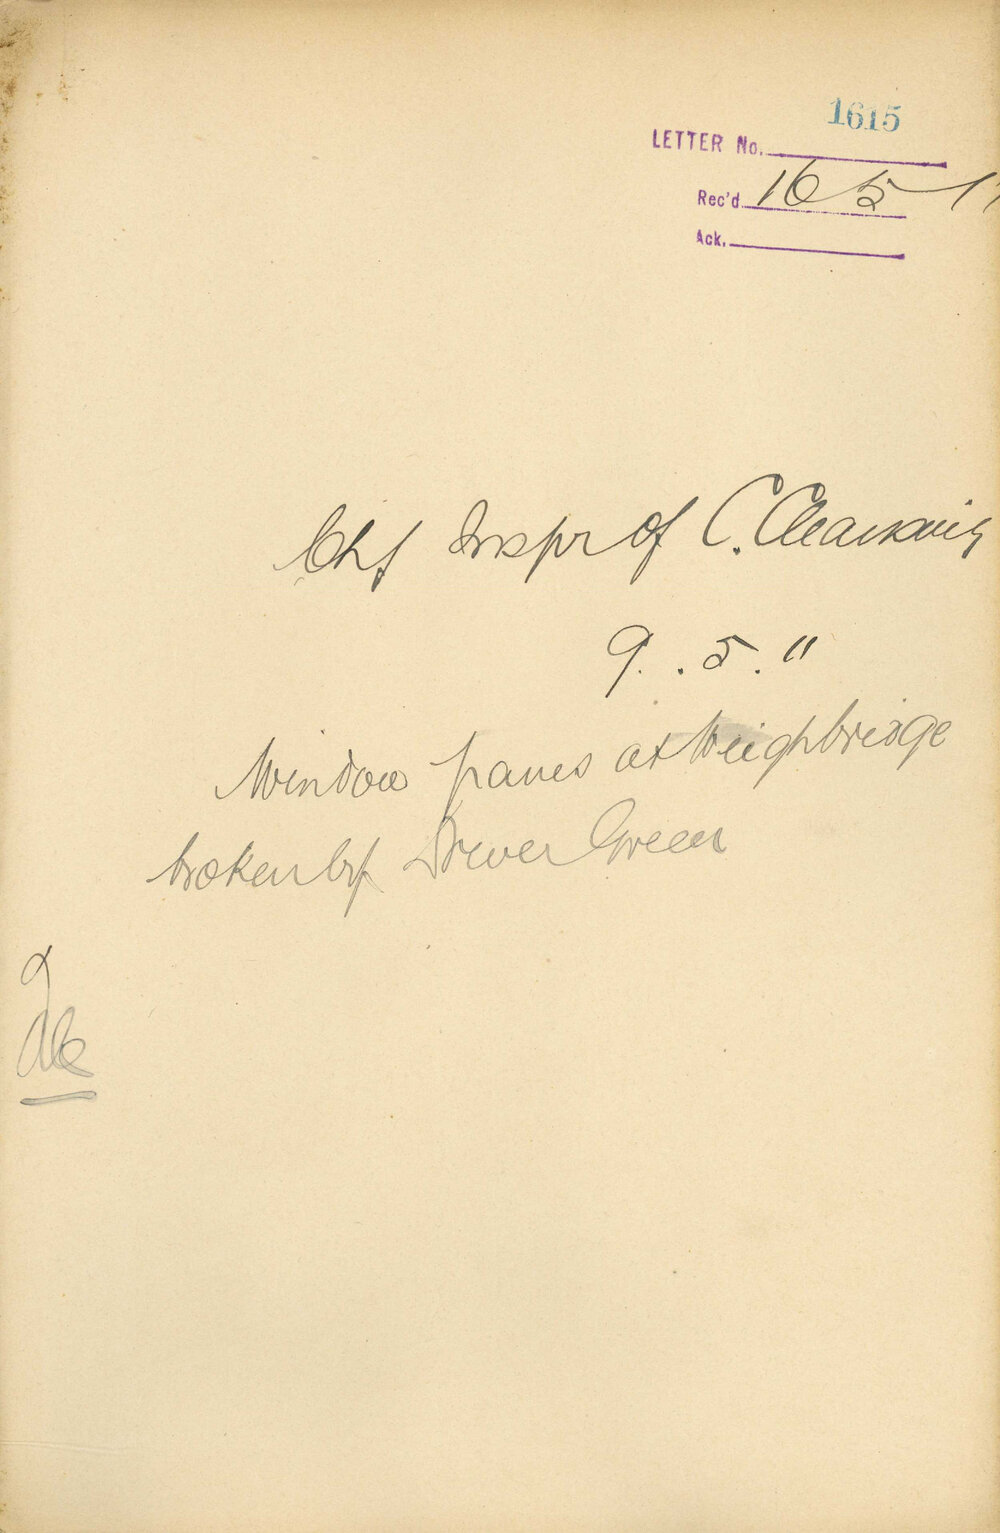 LETTER No. 1615
Rec'd 16 5 11
Ack.
Chf Inspr of C. Cleansing
9. 5. 11
Window panes at Weighbridge
broken by Drver Green